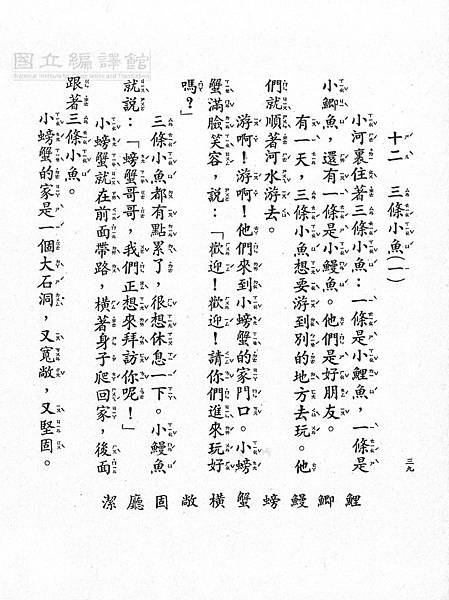 國立編譯館
十二 三條小魚(一)
三九
小河裏住著三條小魚:一條是小鯉魚,一條是
小鯽魚,還有一條是小鰻魚。他們是好朋友。
有一天,三條小魚想要游到別的地方去玩。他
們就順著河水游去。
游啊!游啊!他們來到小螃蟹的家門口。小螃
蟹滿臉笑容,說:「歡迎!歡迎!請你們進來玩好
嗎?」
三條小魚都有點累了,很想休息一下。小鰻魚
就說:「螃蟹哥哥,我們正想來拜訪你呢!」
小螃蟹就在前面帶路,橫著身子爬回家,後面
跟著三條小魚。
小螃蟹的家是一個大石洞,又寬敞,又堅固。
鯉鯽鰻螃蟹橫敞固廳潔